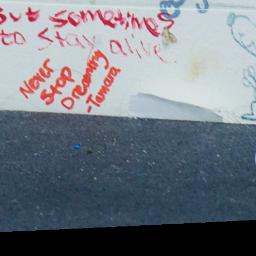 but sometimes
to stay alive.
Never
Stop
Dreaming
-Tamara